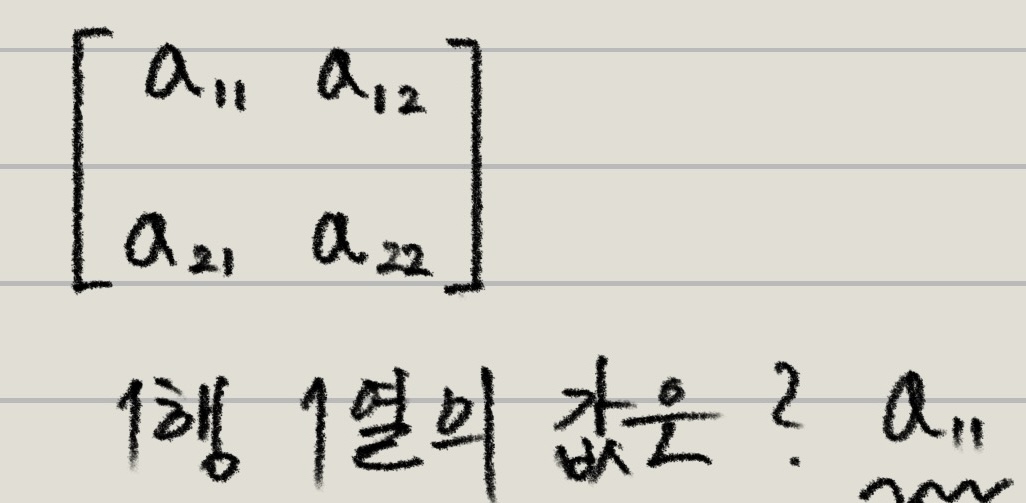 a₁₁ a₁₂
a₂₁ a₂₂
1행 1열의 값은? a₁₁